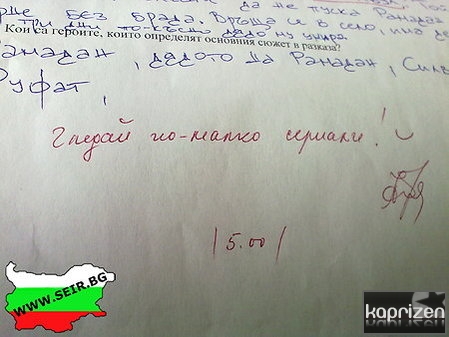 да не пуска Рамадан
още БЕЗ брада. Връща се в село, има
три дни по-късно дядо му умира.
Кои са героите, които определят основния сюжет в разказа?
Рамадан, дядото на Рамадан, Силв
Руфат,
Гледай по-малко сериали!
/ 5.00 /
WWW.SEIR.BG
kaprizen